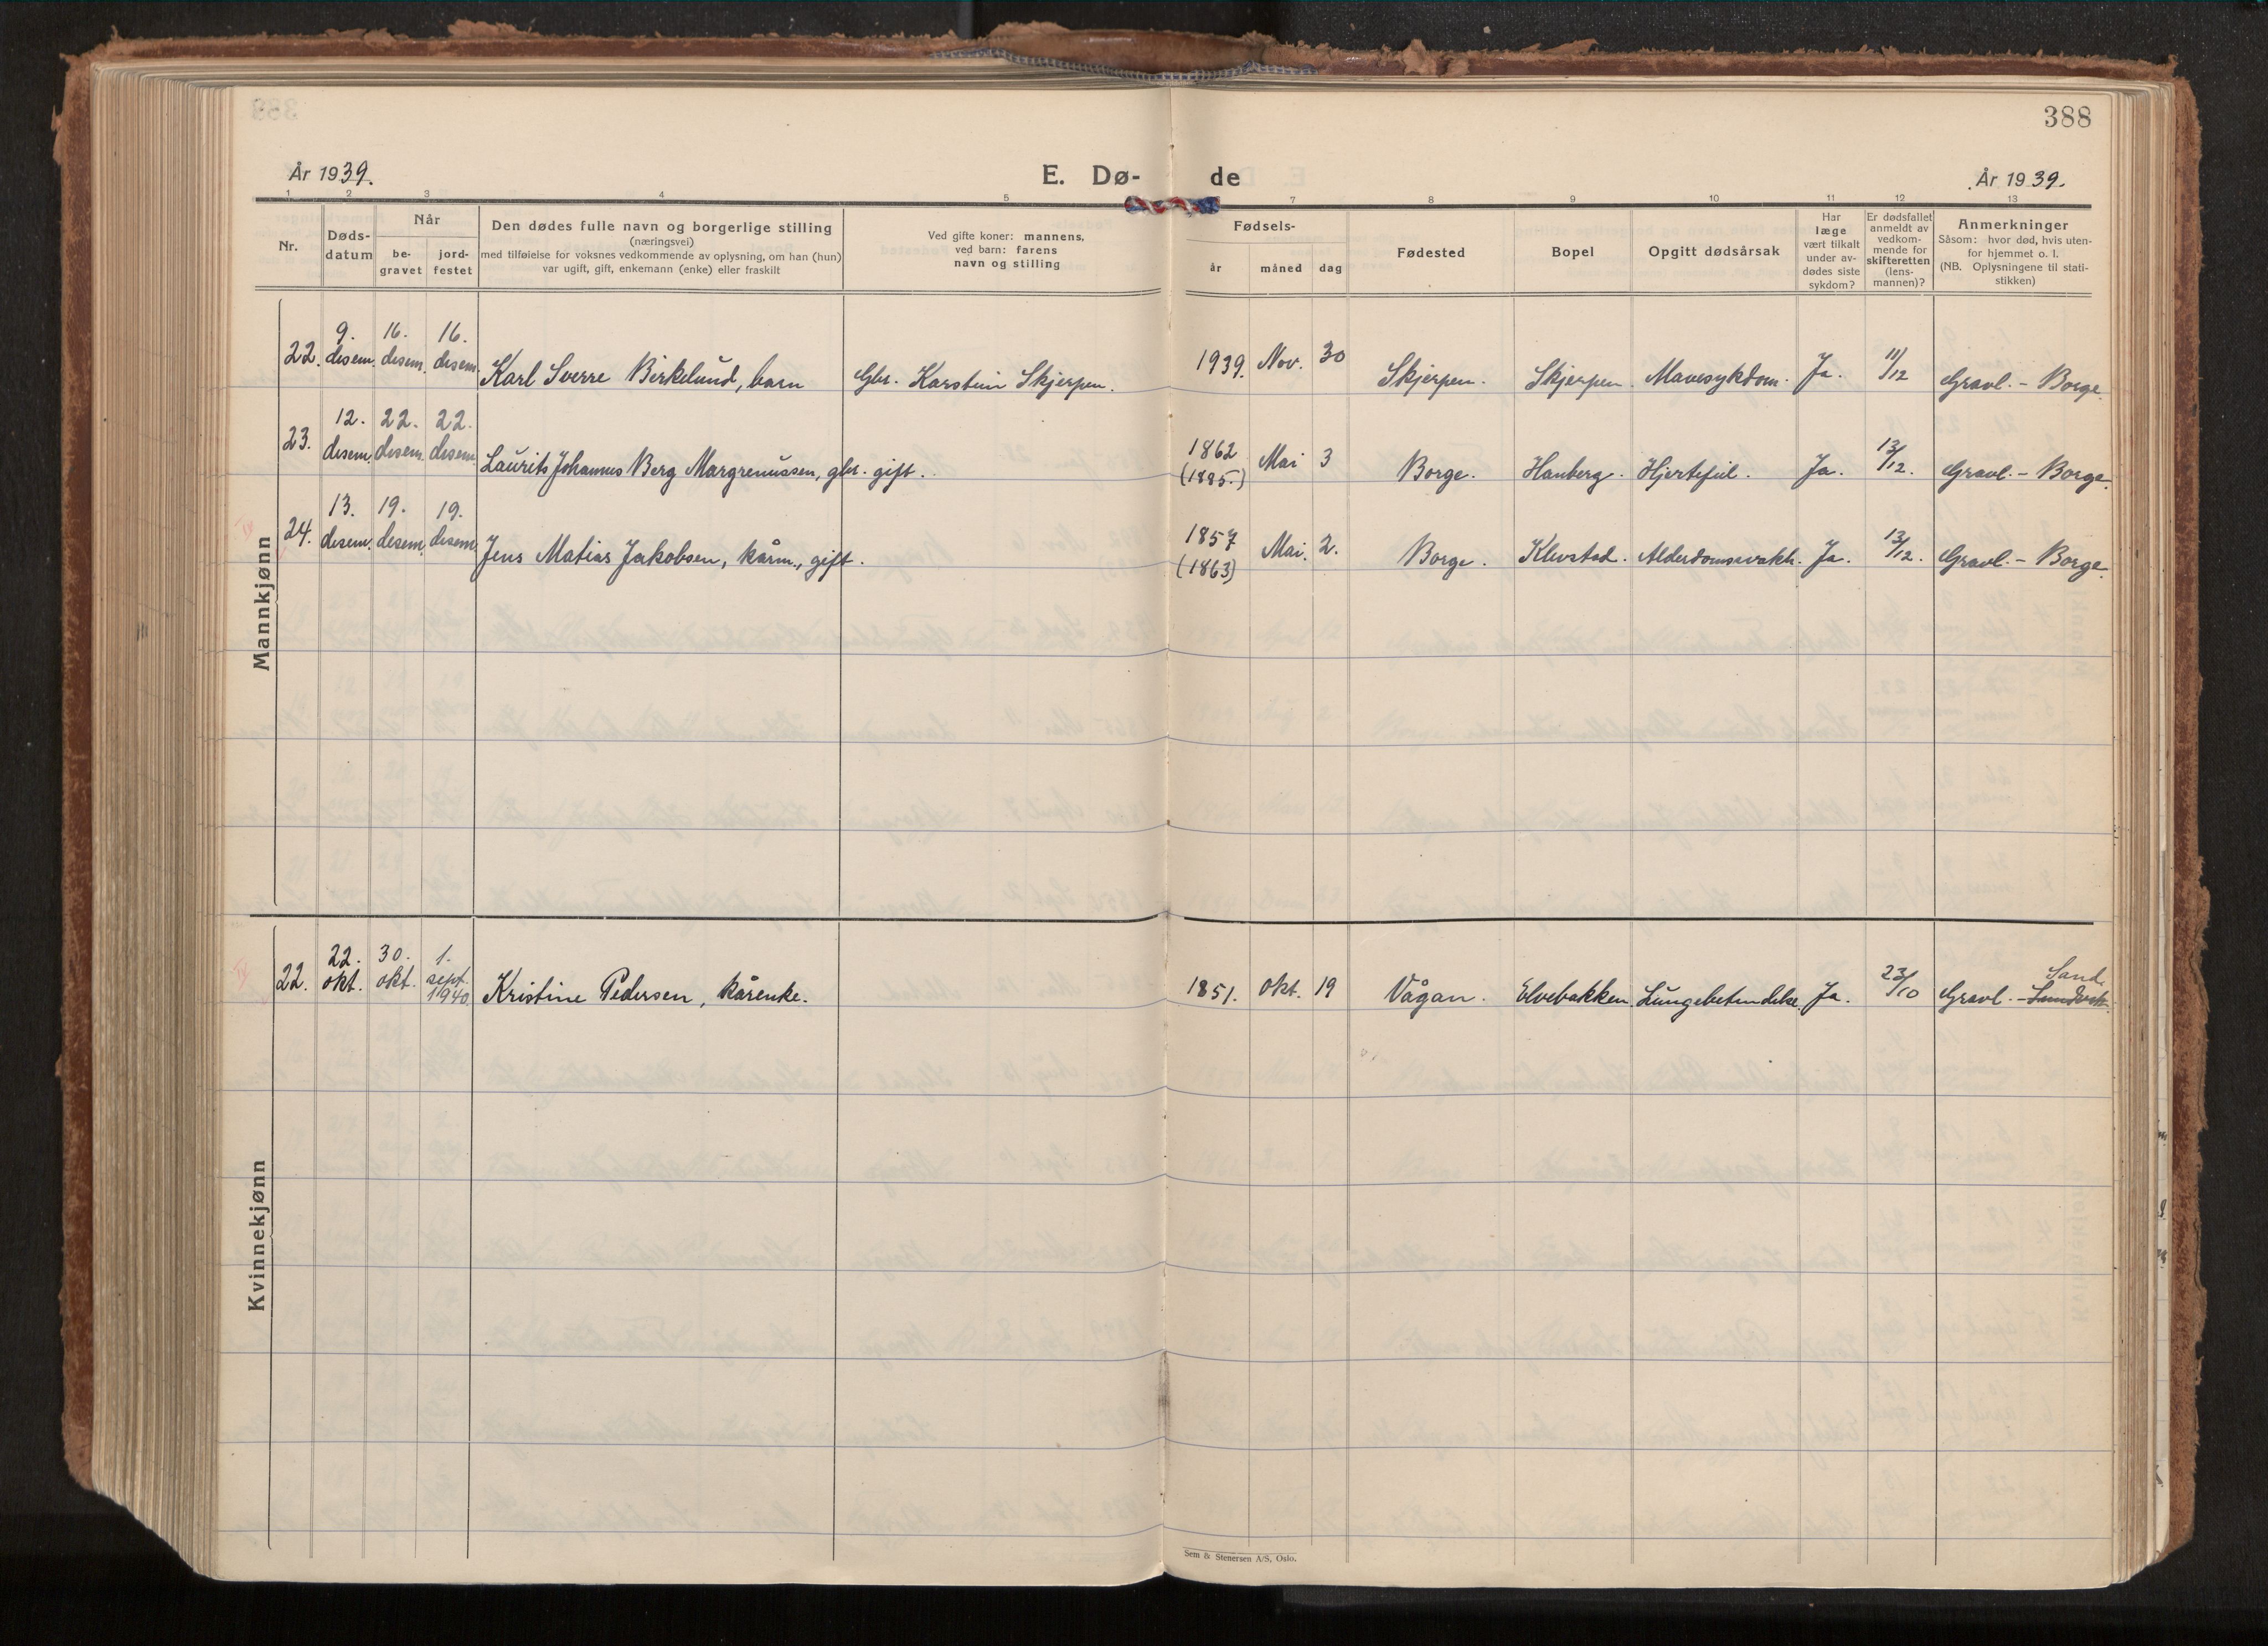 388
År 1939.
E. Dø-
de
År 1939.
1 2 3 4 5 7 8 9 10 11 12 13
Nr.
Døds-
datum
Når
be-
gravet
jord-
festet
Den dødes fulle navn og borgerlige stilling
(næringsvei)
med tilføielse for voksnes vedkommende av oplysning, om han (hun)
var ugift, gift, enkemann (enke) eller fraskilt
Ved gifte koner: mannens,
ved barn: farens
navn og stilling
Fødsels-
år måned dag
Fødested
Bopel
Opgitt dødsårsak
Har
læge
vært tilkalt
under av-
dødes siste
sykdom?
Er dødsfallet
anmeldt av
vedkom-
mende for
skifteretten
(lens-
mannen)?
Anmerkninger
Såsom: hvor død, hvis uten-
for hjemmet o. l.
(NB. Oplysningene til stati-
stikken)
Mannkjønn
22. 9. desem. 16. desem. 16. desem. Karl Sverre Birkelund, barn Gbr. Karstein Skjerpen. 1939. Nov. 30 Skjerpen. Skjerpen. Mavesykdom. Ja. 11/12 Gravl. - Borge.
23. 12. desem. 22. desem. 22. desem. Laurits Johannes Berg Margrenussen, gbr. gift. 1862 (1885.) Mai 3 Borge. Hanberg. Hjertefeil. Ja. 13/12. Gravl. - Borge.
24. 13. desem. 19. desem. 19. desem. Jens Matias Jakobsen, kårm., gift. 1857 (1863) Mai. 2. Borge. Klevstad. Alderdomssvakh. Ja. 13/12. Gravl. - Borge.
Kvinnekjønn
22. 22. okt. 30. okt. 1. sept. 1940 Kristine Pedersen, kårenke. 1851. okt. 19 Vågan. Elvebakken. Lungebetendelse. Ja. 23/10 Gravl. - Sand.
Sem & Stenersen A/S, Oslo.